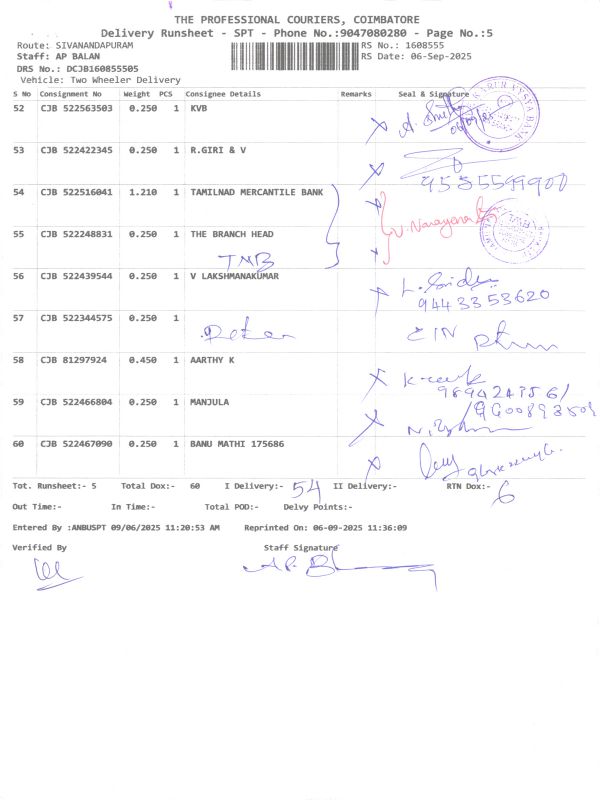 THE PROFESSIONAL COURIERS, COIMBATORE
Delivery Runsheet - SPT - Phone No.:9047080280 - Page No.:5
Route: SIVANANDAPURAM RS No.: 1608555
Staff: AP BALAN RS Date: 06-Sep-2025
DRS No.: DCJB160855505
Vehicle: Two Wheeler Delivery
S No Consignment No Weight PCS Consignee Details Remarks Seal & Signature
52 CJB 522563503 0.250 1 KVB
53 CJB 522422345 0.250 1 R.GIRI & V
9535599900
54 CJB 522516041 1.210 1 TAMILNAD MERCANTILE BANK
V. Narayana
55 CJB 522248831 0.250 1 THE BRANCH HEAD
TMB
56 CJB 522439544 0.250 1 V LAKSHMANAKUMAR
9443353620
57 CJB 522344575 0.250 1
58 CJB 81297924 0.450 1 AARTHY K
59 CJB 522466804 0.250 1 MANJULA
60 CJB 522467090 0.250 1 BANU MATHI 175686
Tot. Runsheet:- 5 Total Dox:- 60 I Delivery:- 54 II Delivery:- RTN Dox:- 6
Out Time:- In Time:- Total POD:- Delvy Points:-
Entered By :ANBUSPT 09/06/2025 11:20:53 AM Reprinted On: 06-09-2025 11:36:09
Verified By Staff Signature